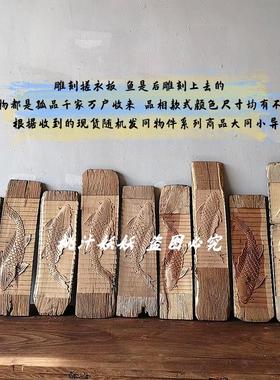 雕刻搓衣板 鱼是后雕刻上去的
物都是孤品千家万户收来 品相款式颜色尺寸均有不
根据收到的现货随机发同物件系列商品大同小异
桃汁妖妖 盗图必究